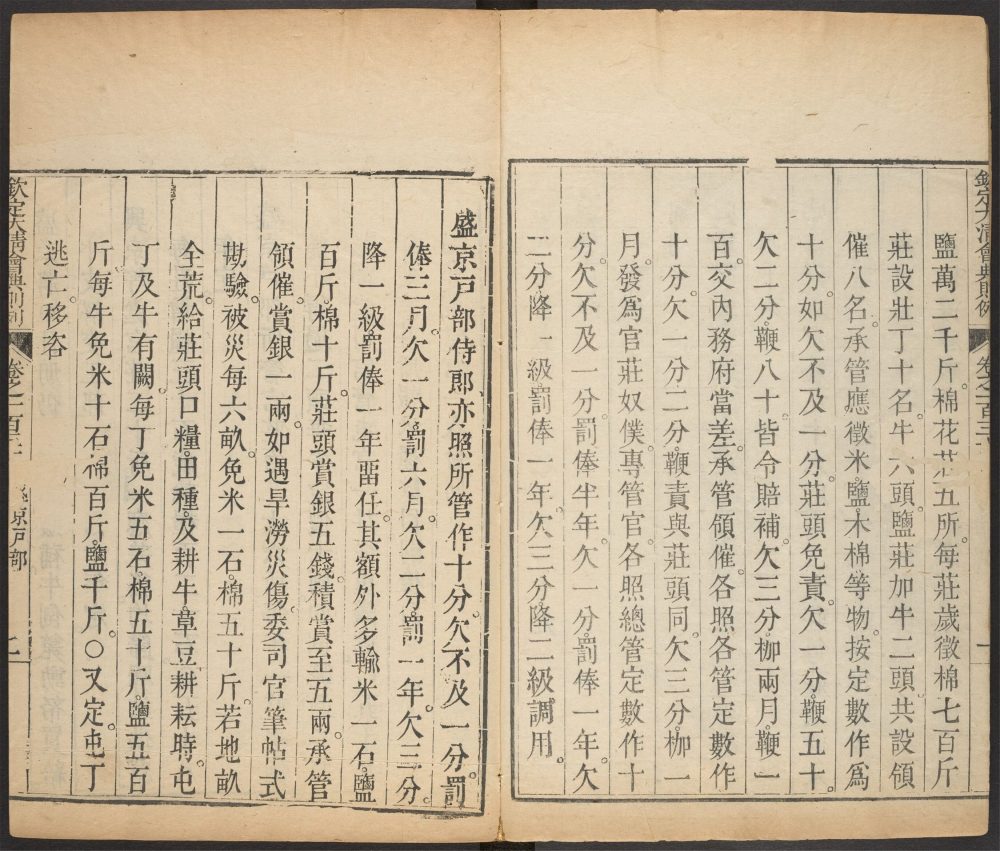 欽定大清會典則例
卷之一百三十
鹽萬二千斤。棉花莊五所。每莊歲徵棉七百斤
莊設壯丁十名。牛六頭。鹽莊加牛二頭。共設領
催八名。承管應徵米鹽木棉等物。按定數作爲
十分。如欠不及一分。莊頭免責。欠一分。鞭五十。
欠二分。鞭八十。皆令賠補。欠三分。枷兩月。鞭一
百。交內務府當差。承管領催。各照各管定數作
十分。欠一分二分。鞭責與莊頭同。欠三分。枷一
月。發爲官莊奴僕。專管官。各照總管定數作十
分。欠不及一分。罰俸半年。欠一分。罰俸一年。欠
二分。降一級。罰俸一年。欠三分。降二級調用。
盛京戸部侍郎。亦照所管作十分。欠不及一分。罰
俸三月。欠一分。罰六月。欠二分。罰一年。欠三分。
降一級。罰俸一年。畱任。其額外多輸米一石。鹽
百斤。棉十斤。莊頭賞銀五錢。積賞至五兩。承管
領催。賞銀一兩。如遇旱澇災傷。委司官筆帖式
勘驗。被災每六畝。免米一石。棉五十斤。若地畝
全荒。給莊頭口糧田種。及耕牛草豆。耕耘時。屯
丁及牛有闕。每丁免米五石。棉五十斤。鹽五百
斤。每牛免米十石。棉百斤。鹽千斤。○又定。屯丁
逃亡移咨
欽定大清會典則例
卷之一百三十
京戸部
二